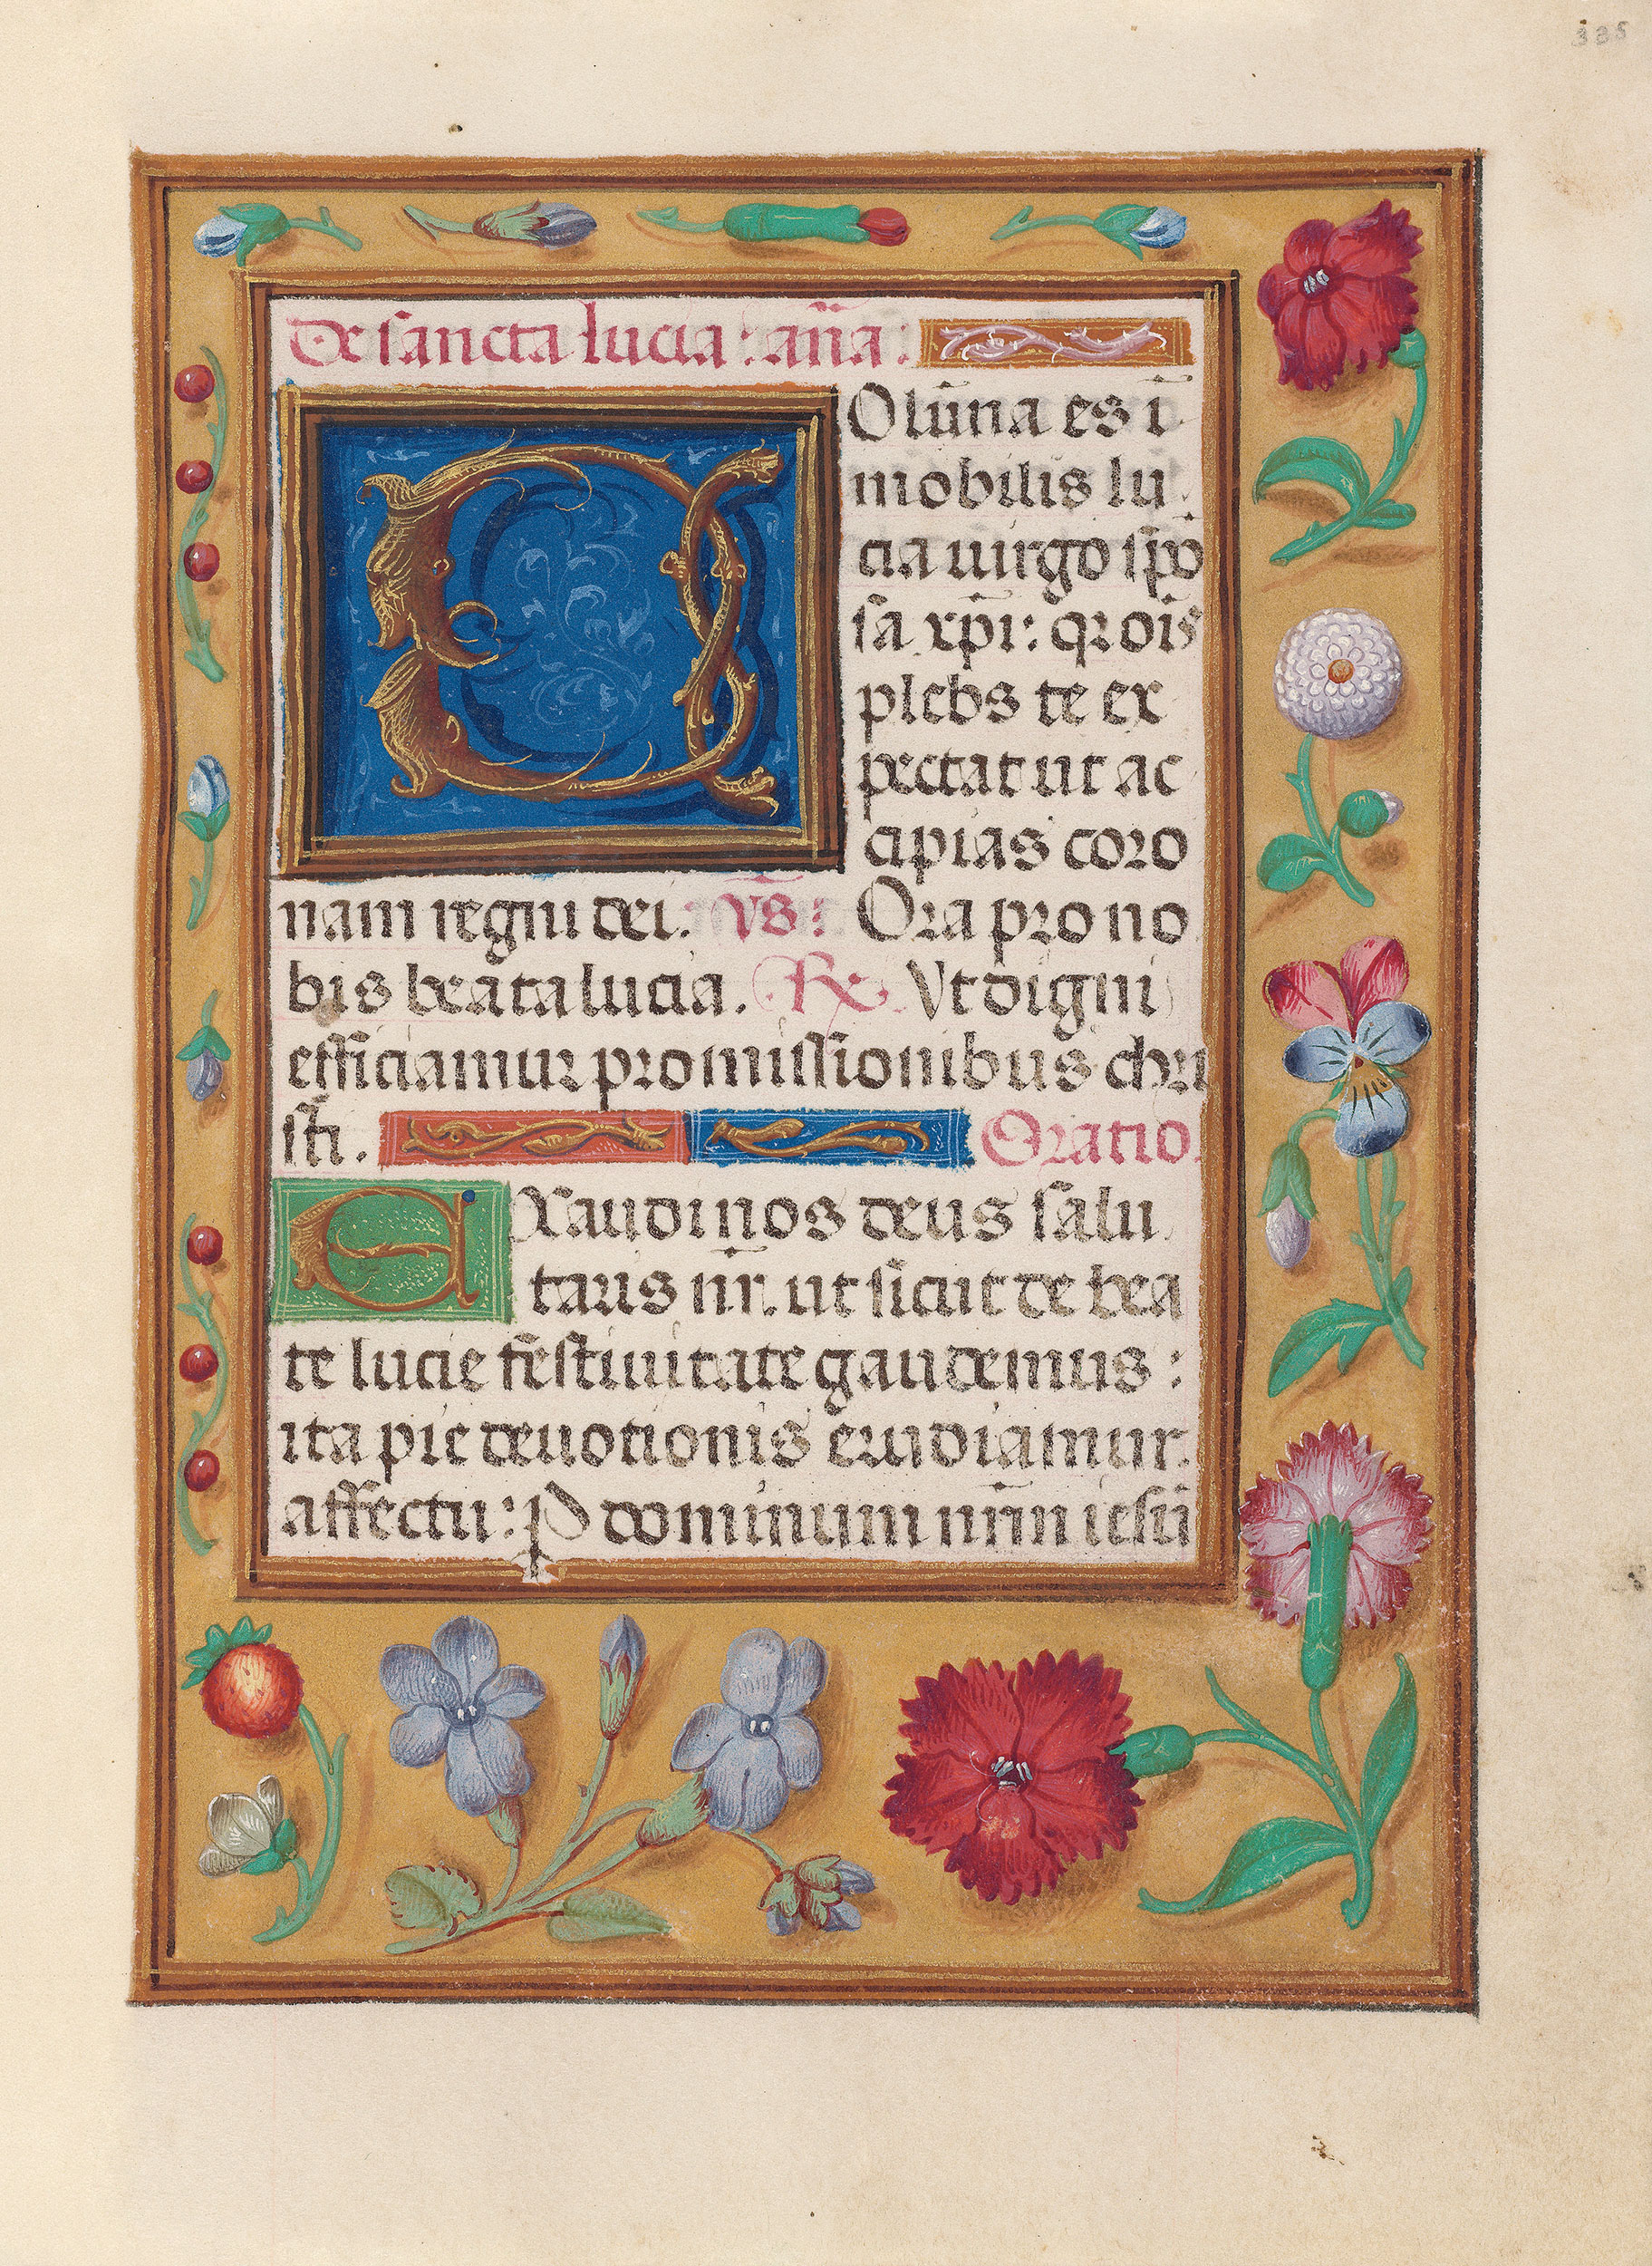 335
De sancta lucia: an̄a:
COlūna es ī
mobilis lu
cia uirgo spō
sa xp̄i: qꝛ oīs
plebs te ex
pectat ut ac
cipias coro
nam regni dei. V̄s: Ora pro no
bis beata lucia. Rx. Vt digni
efficiamur promissionibus chri
sti. Oratio.
EXaudi nos deus salu
taris nr̄. ut sicut de bea
te lucie festiuitate gaudemus:
ita pie deuotionis erudiamur
affectu: P dominum nr̄m iesū